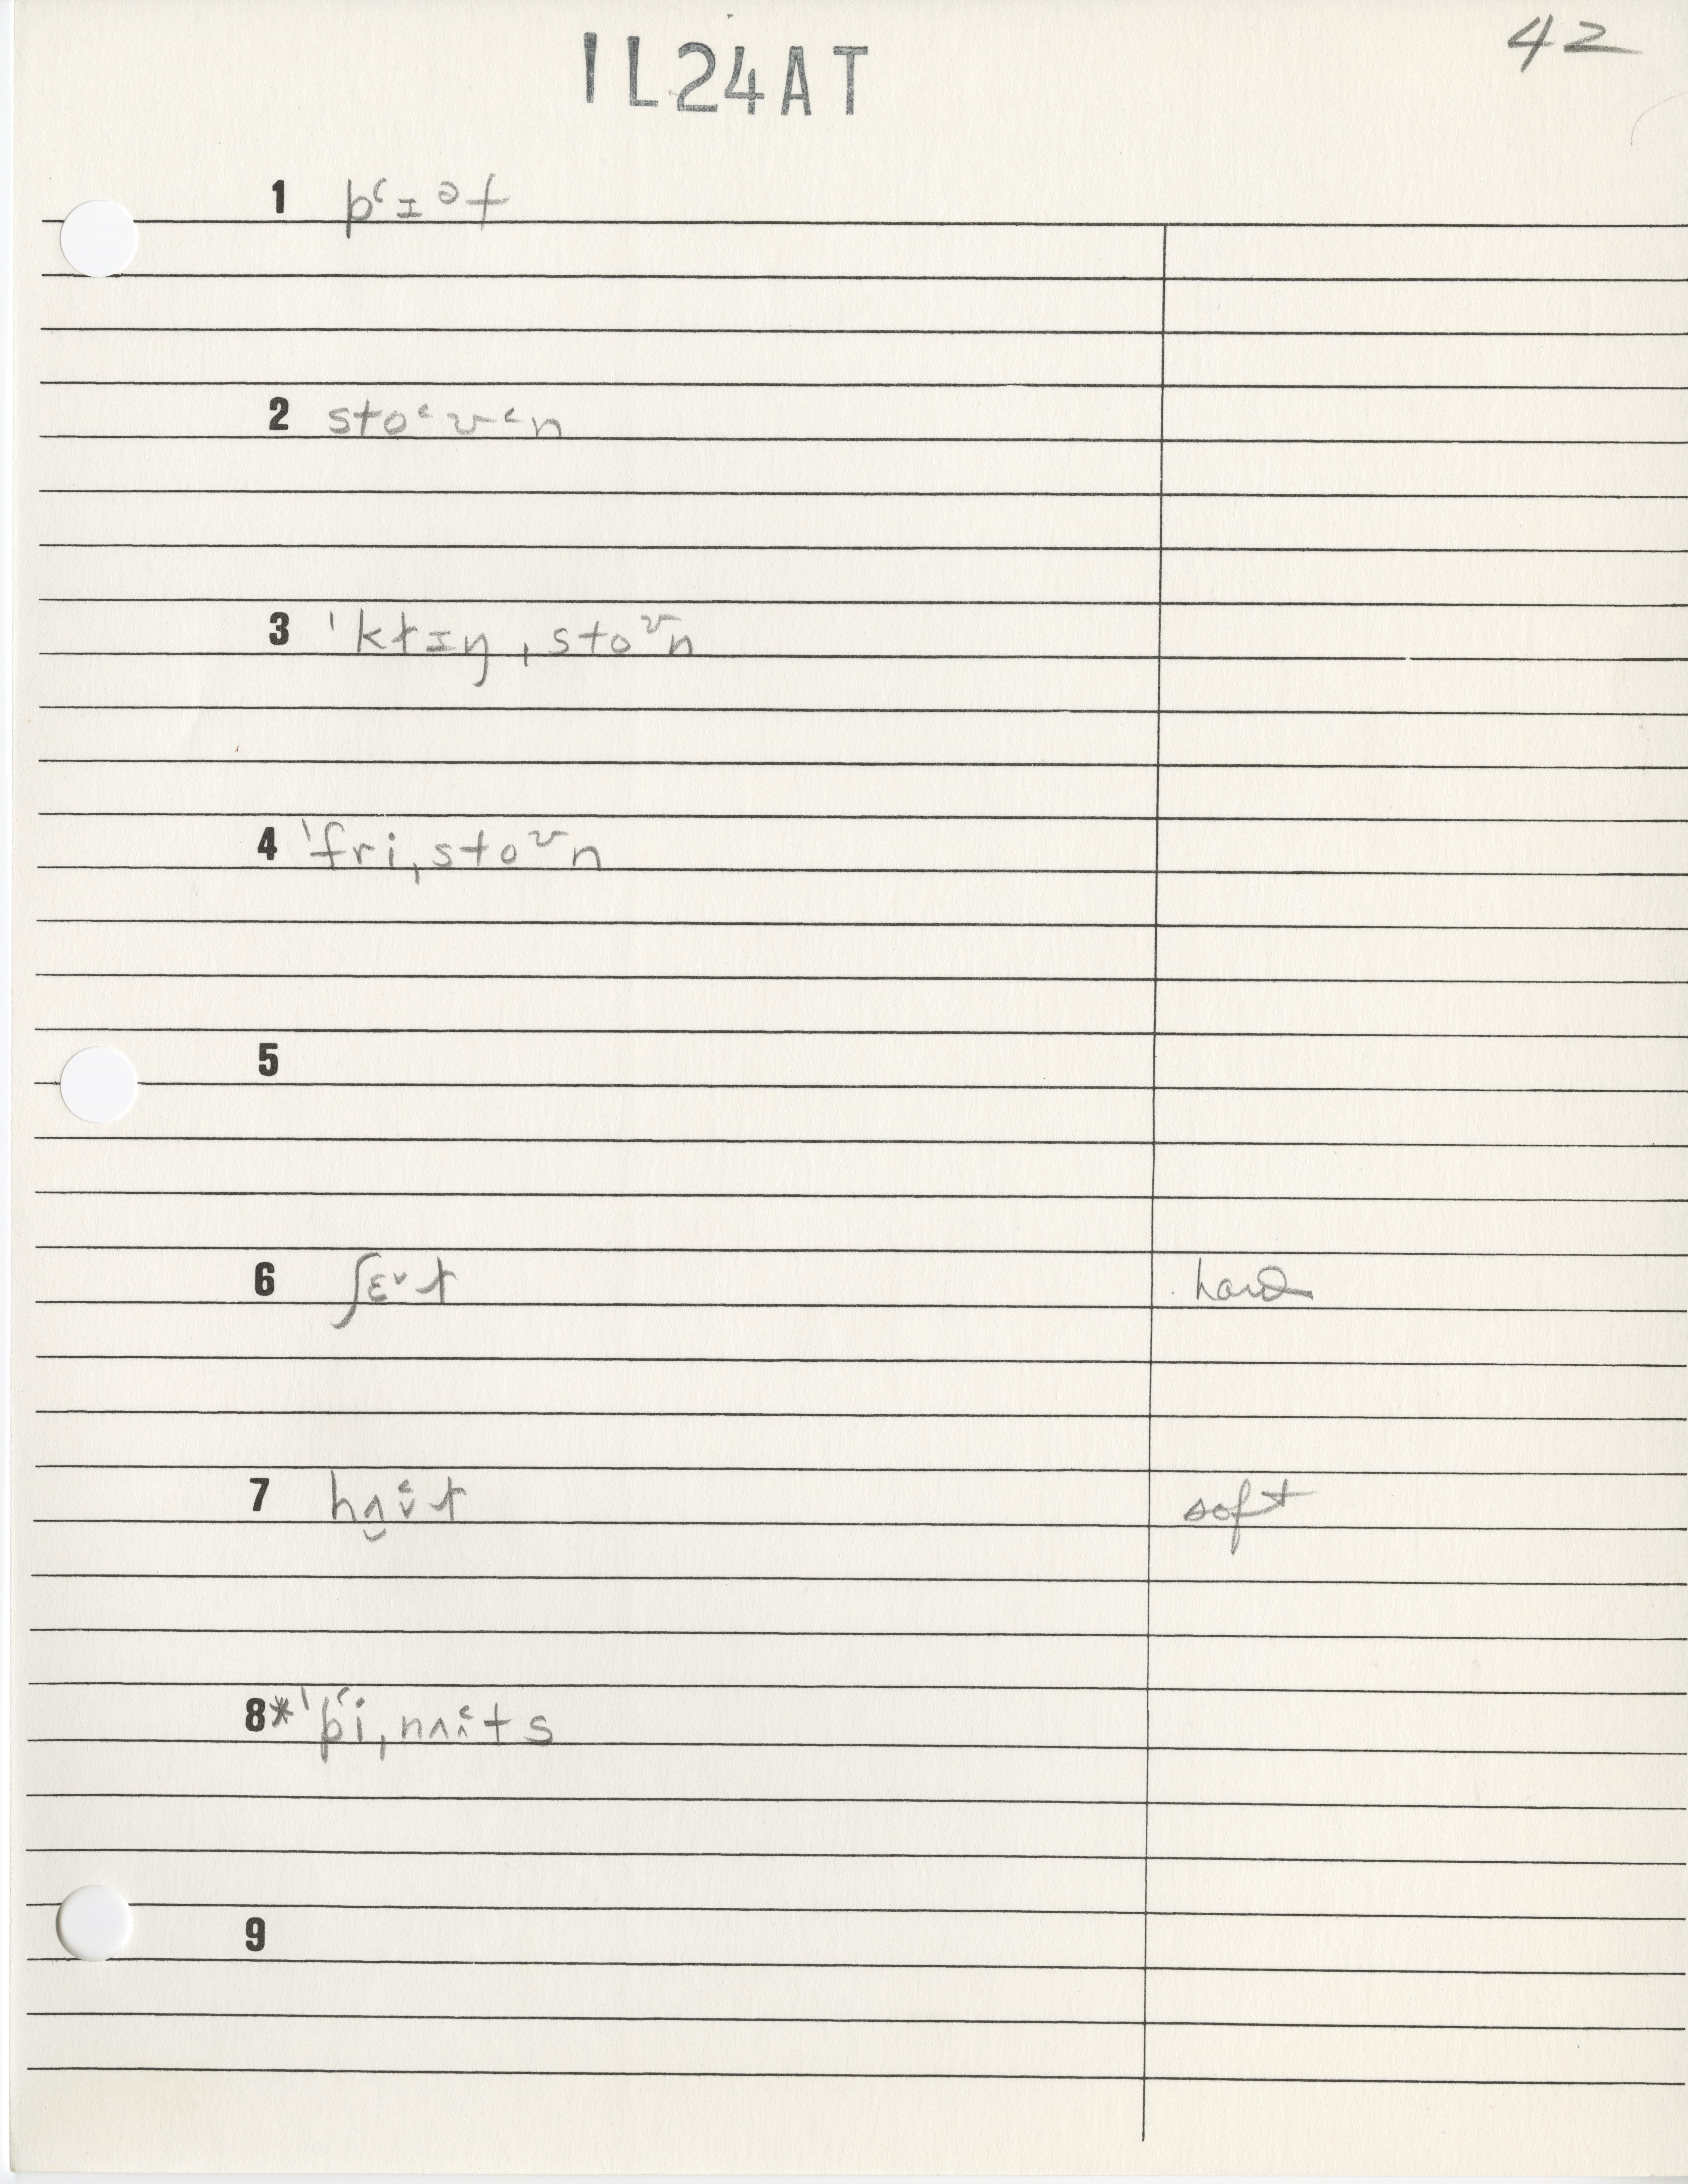 IL24AT
42
1 pʻɪᵊt
2 stoʻʊʻn
3 ˈkɫɪŋˌstoᶷn
4 ˈfriˌstoᶷn
5
6 ʃɛᵛɫ hard
7 hʌ̬ʻᵛɫ soft
8* ˈpʻiˌnʌʌʻts
9